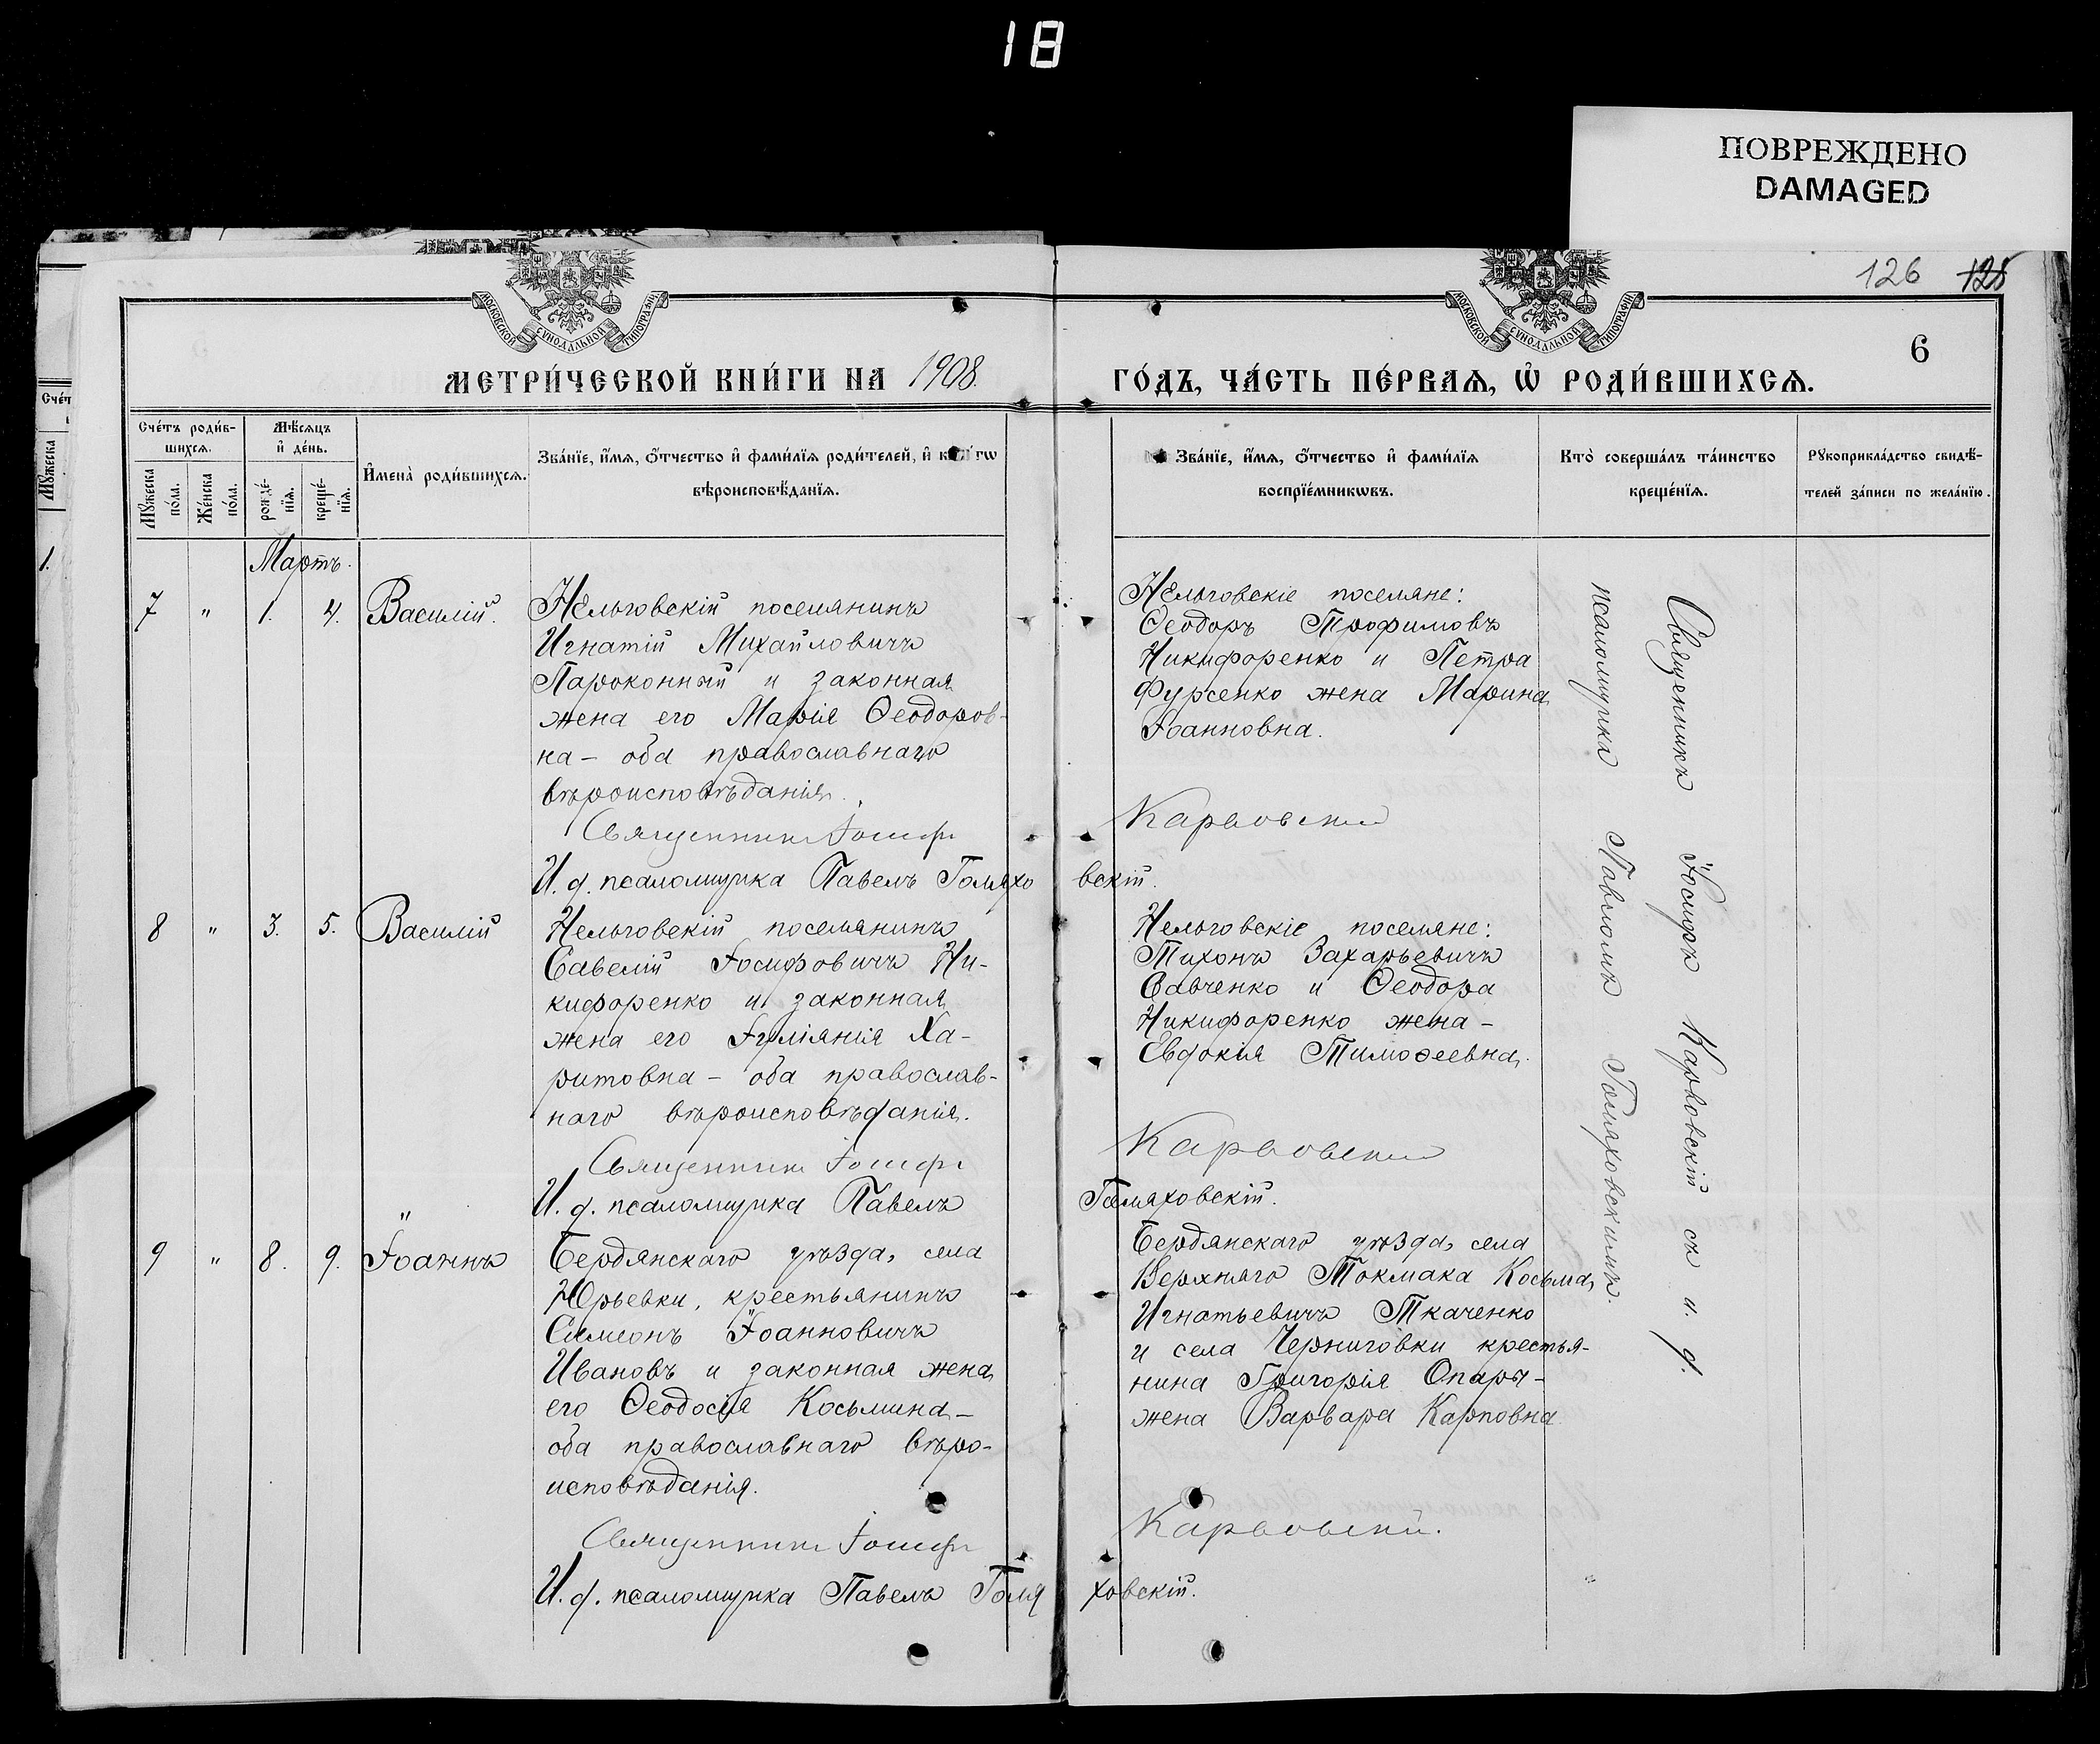 18
ПОВРЕЖДЕНО
DAMAGED
126 125
6
МОСКОВСКОЙ СУНОДАЛЬНОЙ ТИПОГРАФІИ
МОСКОВСКОЙ СУНОДАЛЬНОЙ ТИПОГРАФІИ
МЕТРИ́ЧЕСКОЙ КНИ́ГИ НА 1908. ГО́ДЪ, ЧА́СТЬ ПЕ́РВАѦ, Ѡ҆ РОДИ́ВШИХСѦ.
Сче́тъ роди́в-
шихсѧ.
Мѣ́сѧцъ
и҆ де́нь.
Мꙋ́жеска
по́ла.
Же́нска
по́ла.
рожде́-
нїѧ.
креще́-
нїѧ.
И҆мена̀ роди́вшихсѧ.
Зва́нїе, и҆́мѧ, ѻ҆́тчество и҆ фами́лїѧ роди́телей, и҆
вѣроисповѣ́данїѧ.
Зва́нїе, и҆́мѧ, ѻ҆́тчество и҆ фами́лїѧ
воспрїе́мникѡвъ.
Кто̀ соверша́лъ та́инство
креще́нїѧ.
Рꙋкоприкла́дство свидѣ́-
телей за́писи по жела́нїю.
Сче́т
Мꙋ́жеска
1.
Мартъ.
7 " 1. 4. Василій.
Нельговскій поселянинъ
Игнатій Михайловичъ
Пароконный и законная
жена его Марія Ѳеодоров-
на – оба православнаго
вѣроисповѣданія.
Священникъ Іосифъ Карвовскій
И. д. псаломщика Павелъ Голяховскій.
Нельговскіе поселяне:
Ѳеодоръ Трофимовъ
Никифоренко и Петра
Фурсенко жена Марина
Іоанновна.
8 " 3. 5. Василій
Нельговскій поселянинъ
Савелій Іосифовичъ Ни-
кифоренко и законная
жена его Іуліянія Ха-
ритовна – оба православ-
наго вѣроисповѣданія.
Священникъ Іосифъ Карвовскій
И. д. псаломщика Павелъ Голяховскій.
Нельговскіе поселяне:
Тихонъ Захарьевичъ
Савченко и Ѳеодора
Никифоренко жена –
Евдокія Тимоѳеевна.
9 " 8. 9. Іоаннъ
Бердянскаго уѣзда, села
Юрьевки, крестьянинъ
Симеонъ Іоанновичъ
Ивановъ и законная жена
его Ѳеодосія Косьмина –
оба православнаго вѣро-
исповѣданія.
Священникъ Іосифъ Карвовскій.
И. д. псаломщика Павелъ Голяховскій.
Бердянскаго уѣзда, села
Верхняго Токмака Косьма
Игнатьевичъ Ткаченко
и села Черниговки крестья-
нина Григорія Опары –
жена Варвара Карповна
Священникъ Іосифъ Карвовскій съ и. д.
псаломщика Павломъ Голяховскимъ.